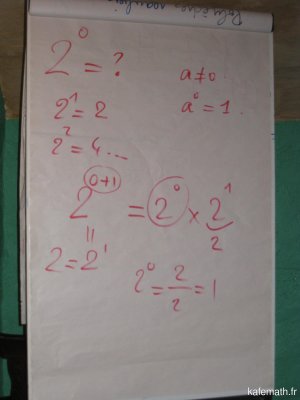 2⁰ = ?
a≠0
2¹ = 2
a⁰ = 1.
2² = 4 ...
2⁰⁺¹ = 2⁰ × 2¹
2
||
2 = 2¹
2⁰ = 2/2 = 1
kafemath.fr